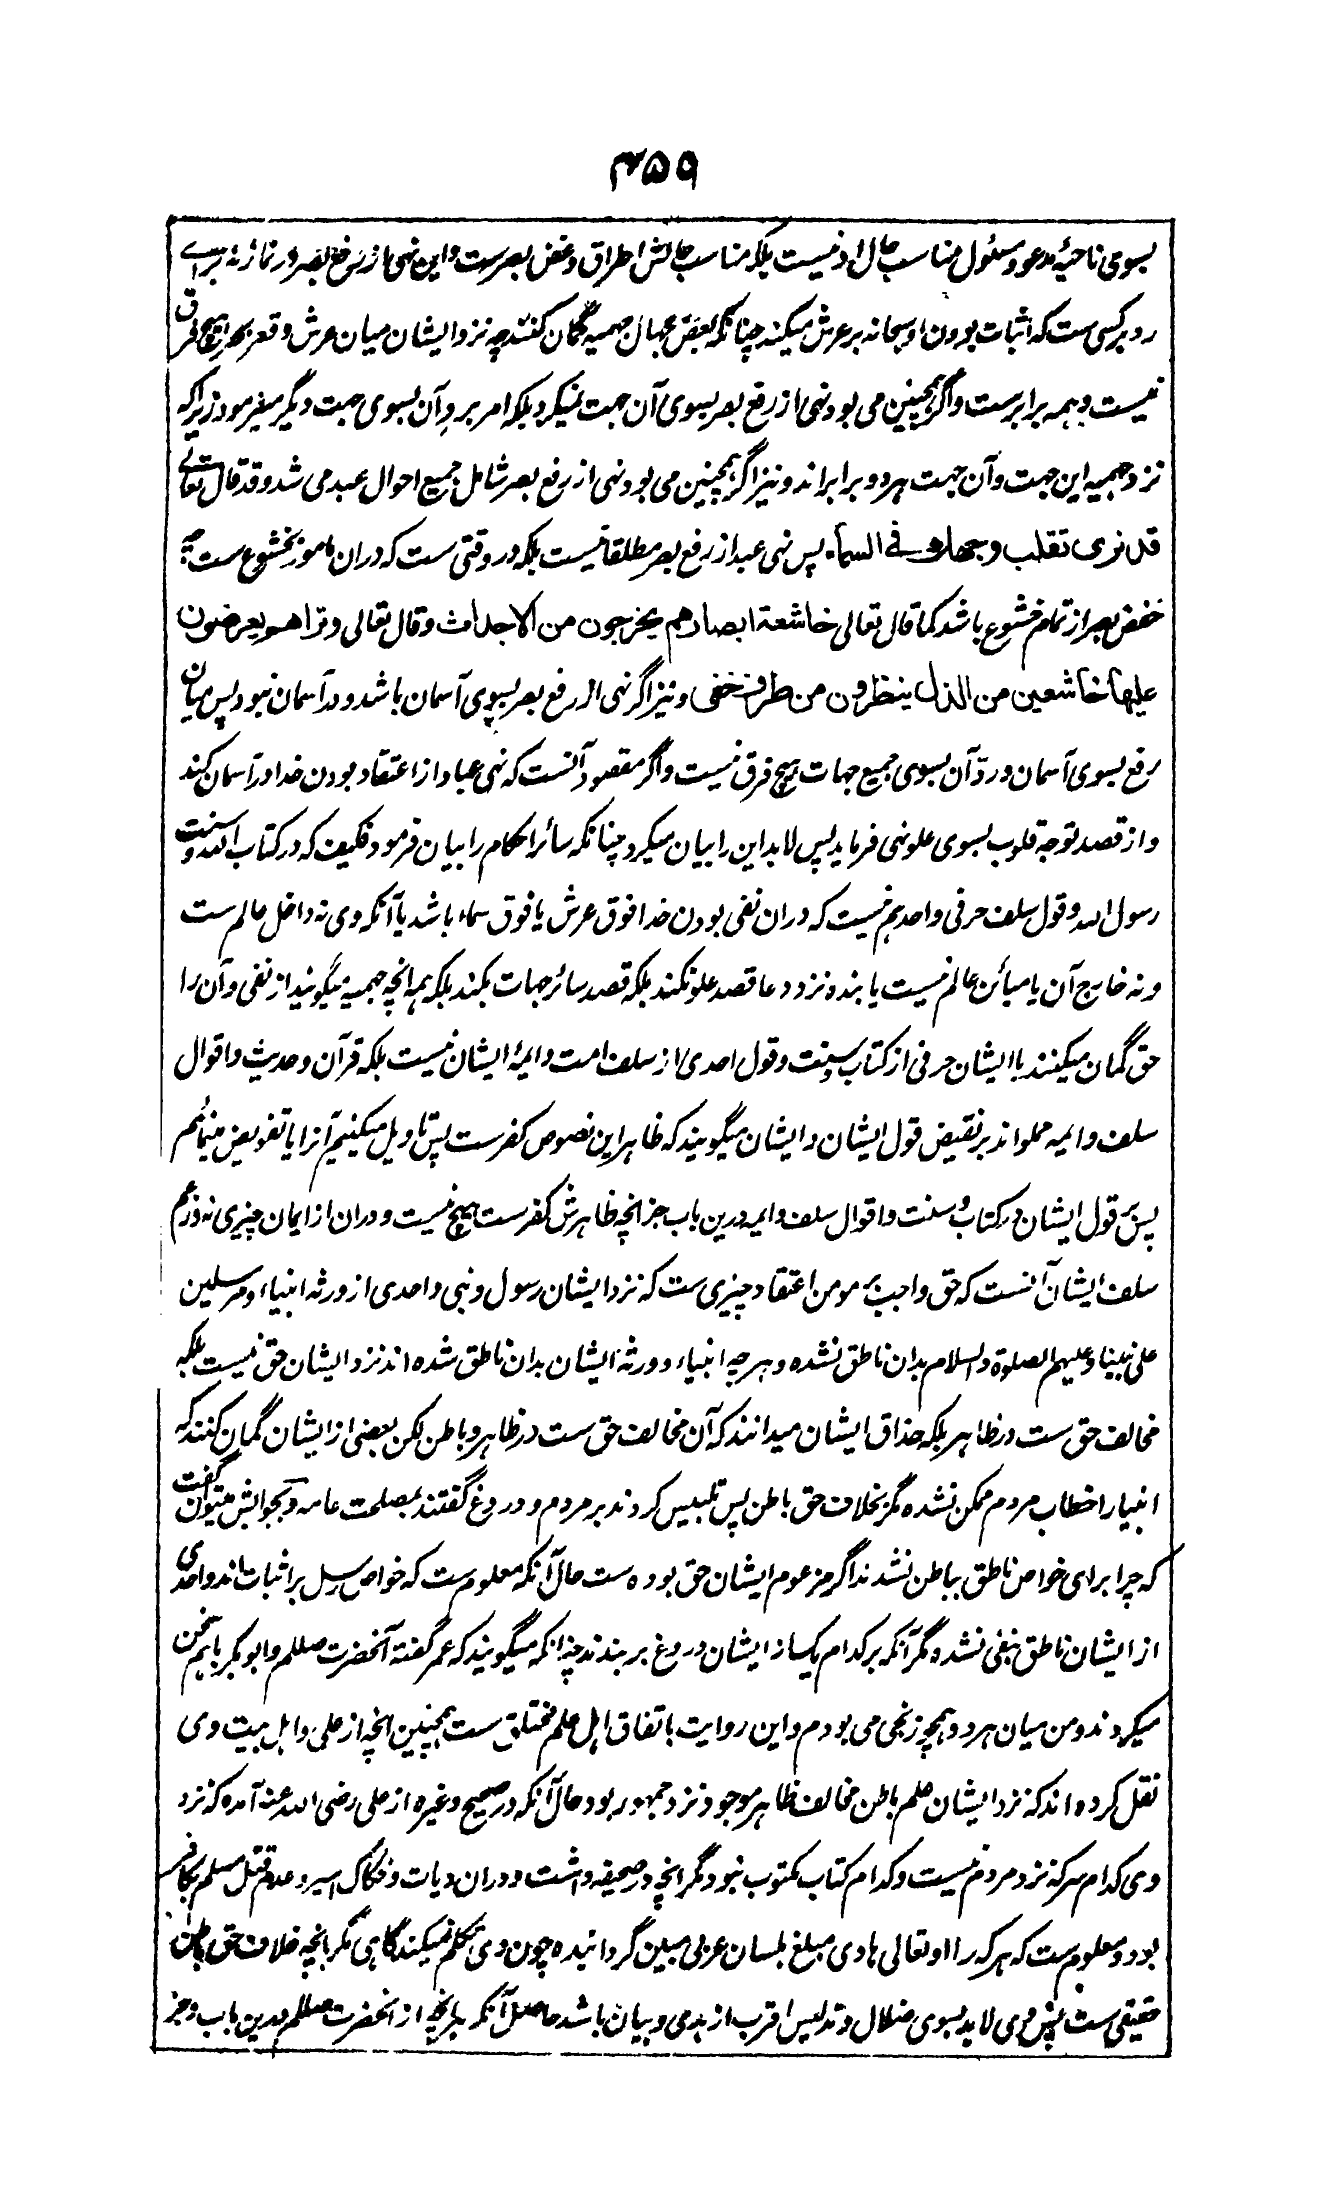 ۴۵۹
بسوی ناحیۀ مدعو و مسئول مناسب حال او نیست بلکه مناسب حالش اطراق و غض بصرست و این نهی از رفع بصر در نماز نه برای
رد بر کسی ست که اثبات بودن او سبحانه بر عرش میکند چنانکه بعض جهال جهمیه گمان کنند چه نزد ایشان میان عرش و قعر بحر هیچ فرق
نیست و همه برابرست و اگر همچنین می بود نهی از رفع بصر بسوی آن جهت نمیکرد بلکه امر برد آن بسوی جهت دیگر میفرمود زیراکه
نزد جهمیه این جهت و آن جهت هر دو برابراند و نیز اگر همچنین می بود نهی از رفع بصر شامل جمیع احوال عبد می شد و قد قال تعالی
قد نری تقلب وجهک فی السماء پس نهی عبد از رفع بصر مطلقا نیست بلکه در وقتی ست که دران مامور بخشوع ست چه
خفض بصر از تمام خشوع باشد کما قال تعالی خاشعة ابصارهم یخرجون من الاجداث و قال تعالی و تراهم یعرضون
علیها خاشعین من الذل ینظرون من طرف خفی و نیز اگر نهی از رفع بصر بسوی آسمان باشد و در آسمان نبود پس میان
رفع بسوی آسمان و رد آن بسوی جمیع جهات هیچ فرق نیست و اگر مقصود آنست که نهی عباد از اعتقاد بودن خدا در آسمان کند
و از قصد توجه قلوب بسوی علو نهی فرماید پس لابد این را بیان میکرد چنانکه سائر احکام را بیان فرمود فکیف که در کتاب الله و سنت
رسول الله و قول سلف حرفی واحد هم نیست که دران نفی بودن خدا فوق عرش یا فوق سماء باشد یا آنکه وی نه داخل عالم ست
و نه خارج آن یا مبائن عالم نیست یا بنده نزد دعا قصد علو نکند بلکه قصد سائر جهات بکند بلکه همه انچه جهمیه میگویند از نفی و آن را
حق گمان میکنند با ایشان حرفی از کتاب و سنت و قول احدی از سلف امت و ایمۀ ایشان نیست بلکه قرآن و حدیث و اقوال
سلف و ایمه مملو اند بر نقیض قول ایشان و ایشان میگویند که ظاهر این نصوص کفرست پس تاویل میکنیم آنرا یا تفویض مینمائیم
پس بر قول ایشان در کتاب و سنت و اقوال سلف و ایمه درین باب جز انچه ظاهرش کفرست هیچ نیست و دران از ایمان چیزی نه و زعم
سلف ایشان آنست که حق واجب بر مومن اعتقاد چیزی ست که نزد ایشان رسول و نبی و احدی از ورثه انبیاء و مرسلین
علی نبینا و علیهم الصلوة والسلام بدان ناطق نشده و هر چه انبیاء و ورثۀ ایشان بدان ناطق شده اند نزد ایشان حق نیست بلکه
مخالف حق ست در ظاهر بلکه حذاق ایشان میدانند که آن مخالف حق ست در ظاهر و باطن لکن بعضی از ایشان گمان کنند که
انبیا را خطاب مردم ممکن نشده مگر بخلاف حق باطن پس تلبیس کردند بر مردم و دروغ گفتند بمصلحت عامه و بجوابش میتوان گفت
که چرا برای خواص ناطق بباطن نشدند اگر مزعوم ایشان حق بوده ست حال آنکه معلوم ست که خواص رسل بر اثبات اند و احدی
از ایشان ناطق بنفی نشده مگر آنکه بر کدام یکے از ایشان دروغ بر بندند چنانکه میگویند که عمر گفته آنحضرت صللم و ابو بکر باهم سخن
میکردند و من میان هر دو همچو زنجی می بودم و این روایت باتفاق اهل علم مختلق ست همچنین انچه از علی و اهل بیت وی
نقل کرده اند که نزد ایشان علم باطن مخالف ظاهر موجود نزد جمهور بود حال آنکه در صحیح و غیره از علی رضی الله عنه آمده که نزد
وی کدام سر که نزد مردم نیست و کدام کتاب مکتوب نبود مگر انچه در صحیفه داشت و دران دیات و فکاک اسیر و عدم قتل مسلم بکافر
بود و معلوم ست که هر که را او تعالی هادی مبلغ بلسان عربی مبین گردانیده چون وی تکلم نمیکند گاهی مگر بانچه خلاف حق باطن
حقیقی ست پس وی لابد بسوی ضلال و تدلیس اقرب از هدی و بیان باشد حاصل آنکه هر انچه از آنحضرت صللم درین باب و جز